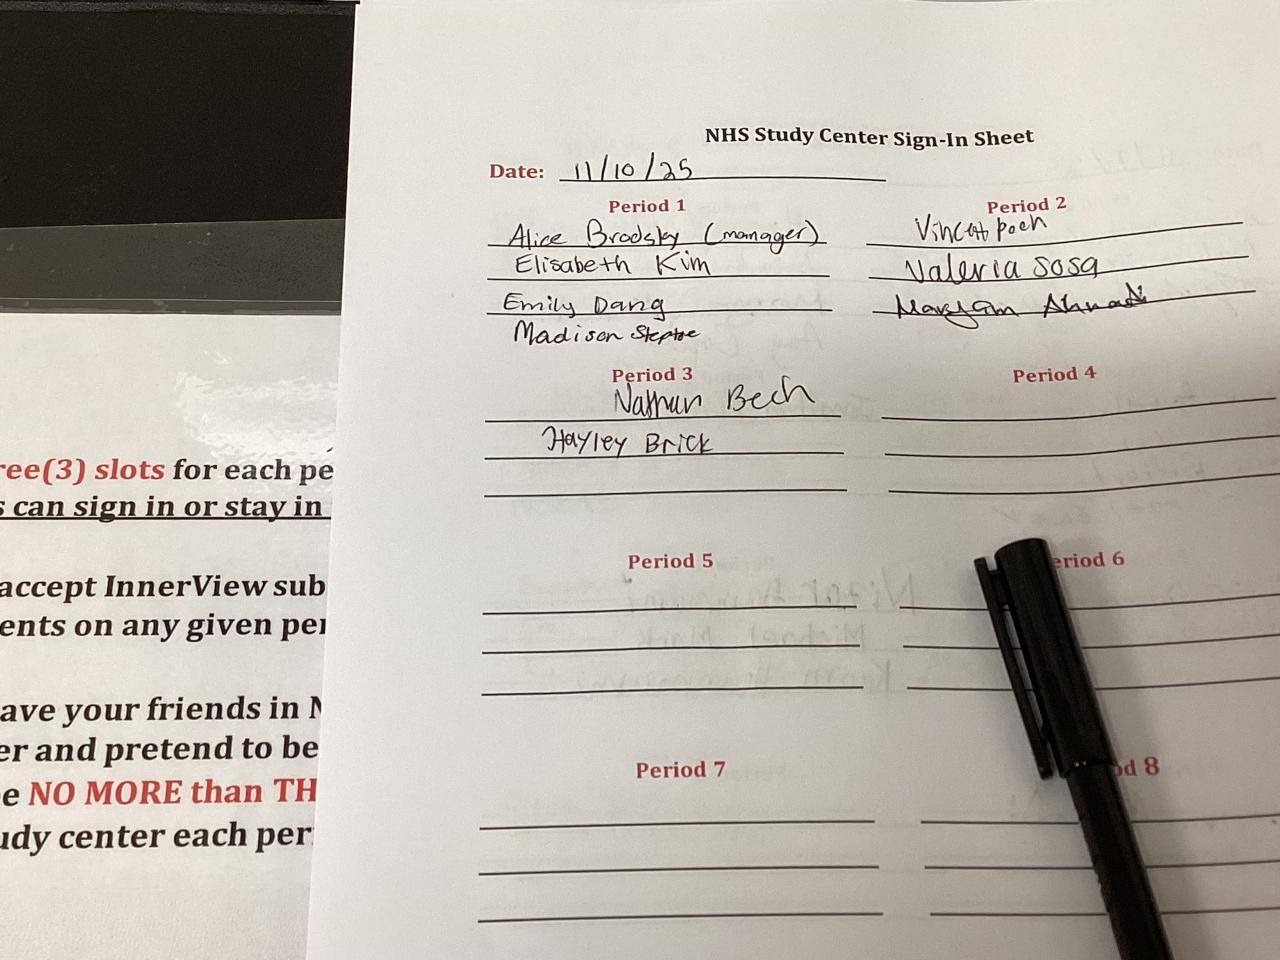 NHS Study Center Sign-In Sheet
Date: 11/10/25
Period 1
Alice Brodsky (manager)
Elisabeth Kim
Emily Dang
Madison Steptoe
Period 2
Vincent poch
Valeria sosa
Maryam Ahmadi
Period 3
Nathan Bech
Hayley Brick
Period 4
Period 5
eriod 6
Period 7
od 8
ree(3) slots for each pe
s can sign in or stay in
accept InnerView sub
ents on any given per
ave your friends in N
er and pretend to be
e NO MORE than TH
udy center each per